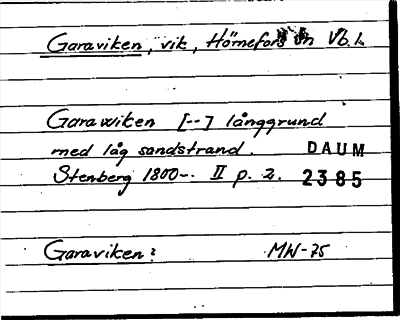 Garaviken, vik, Hörnefors sn Vb. l.
Garawiken [--] långgrund
med låg sandstrand. DAUM
Stenberg 1800-. II p. 2. 2385
Garaviken: MW-75